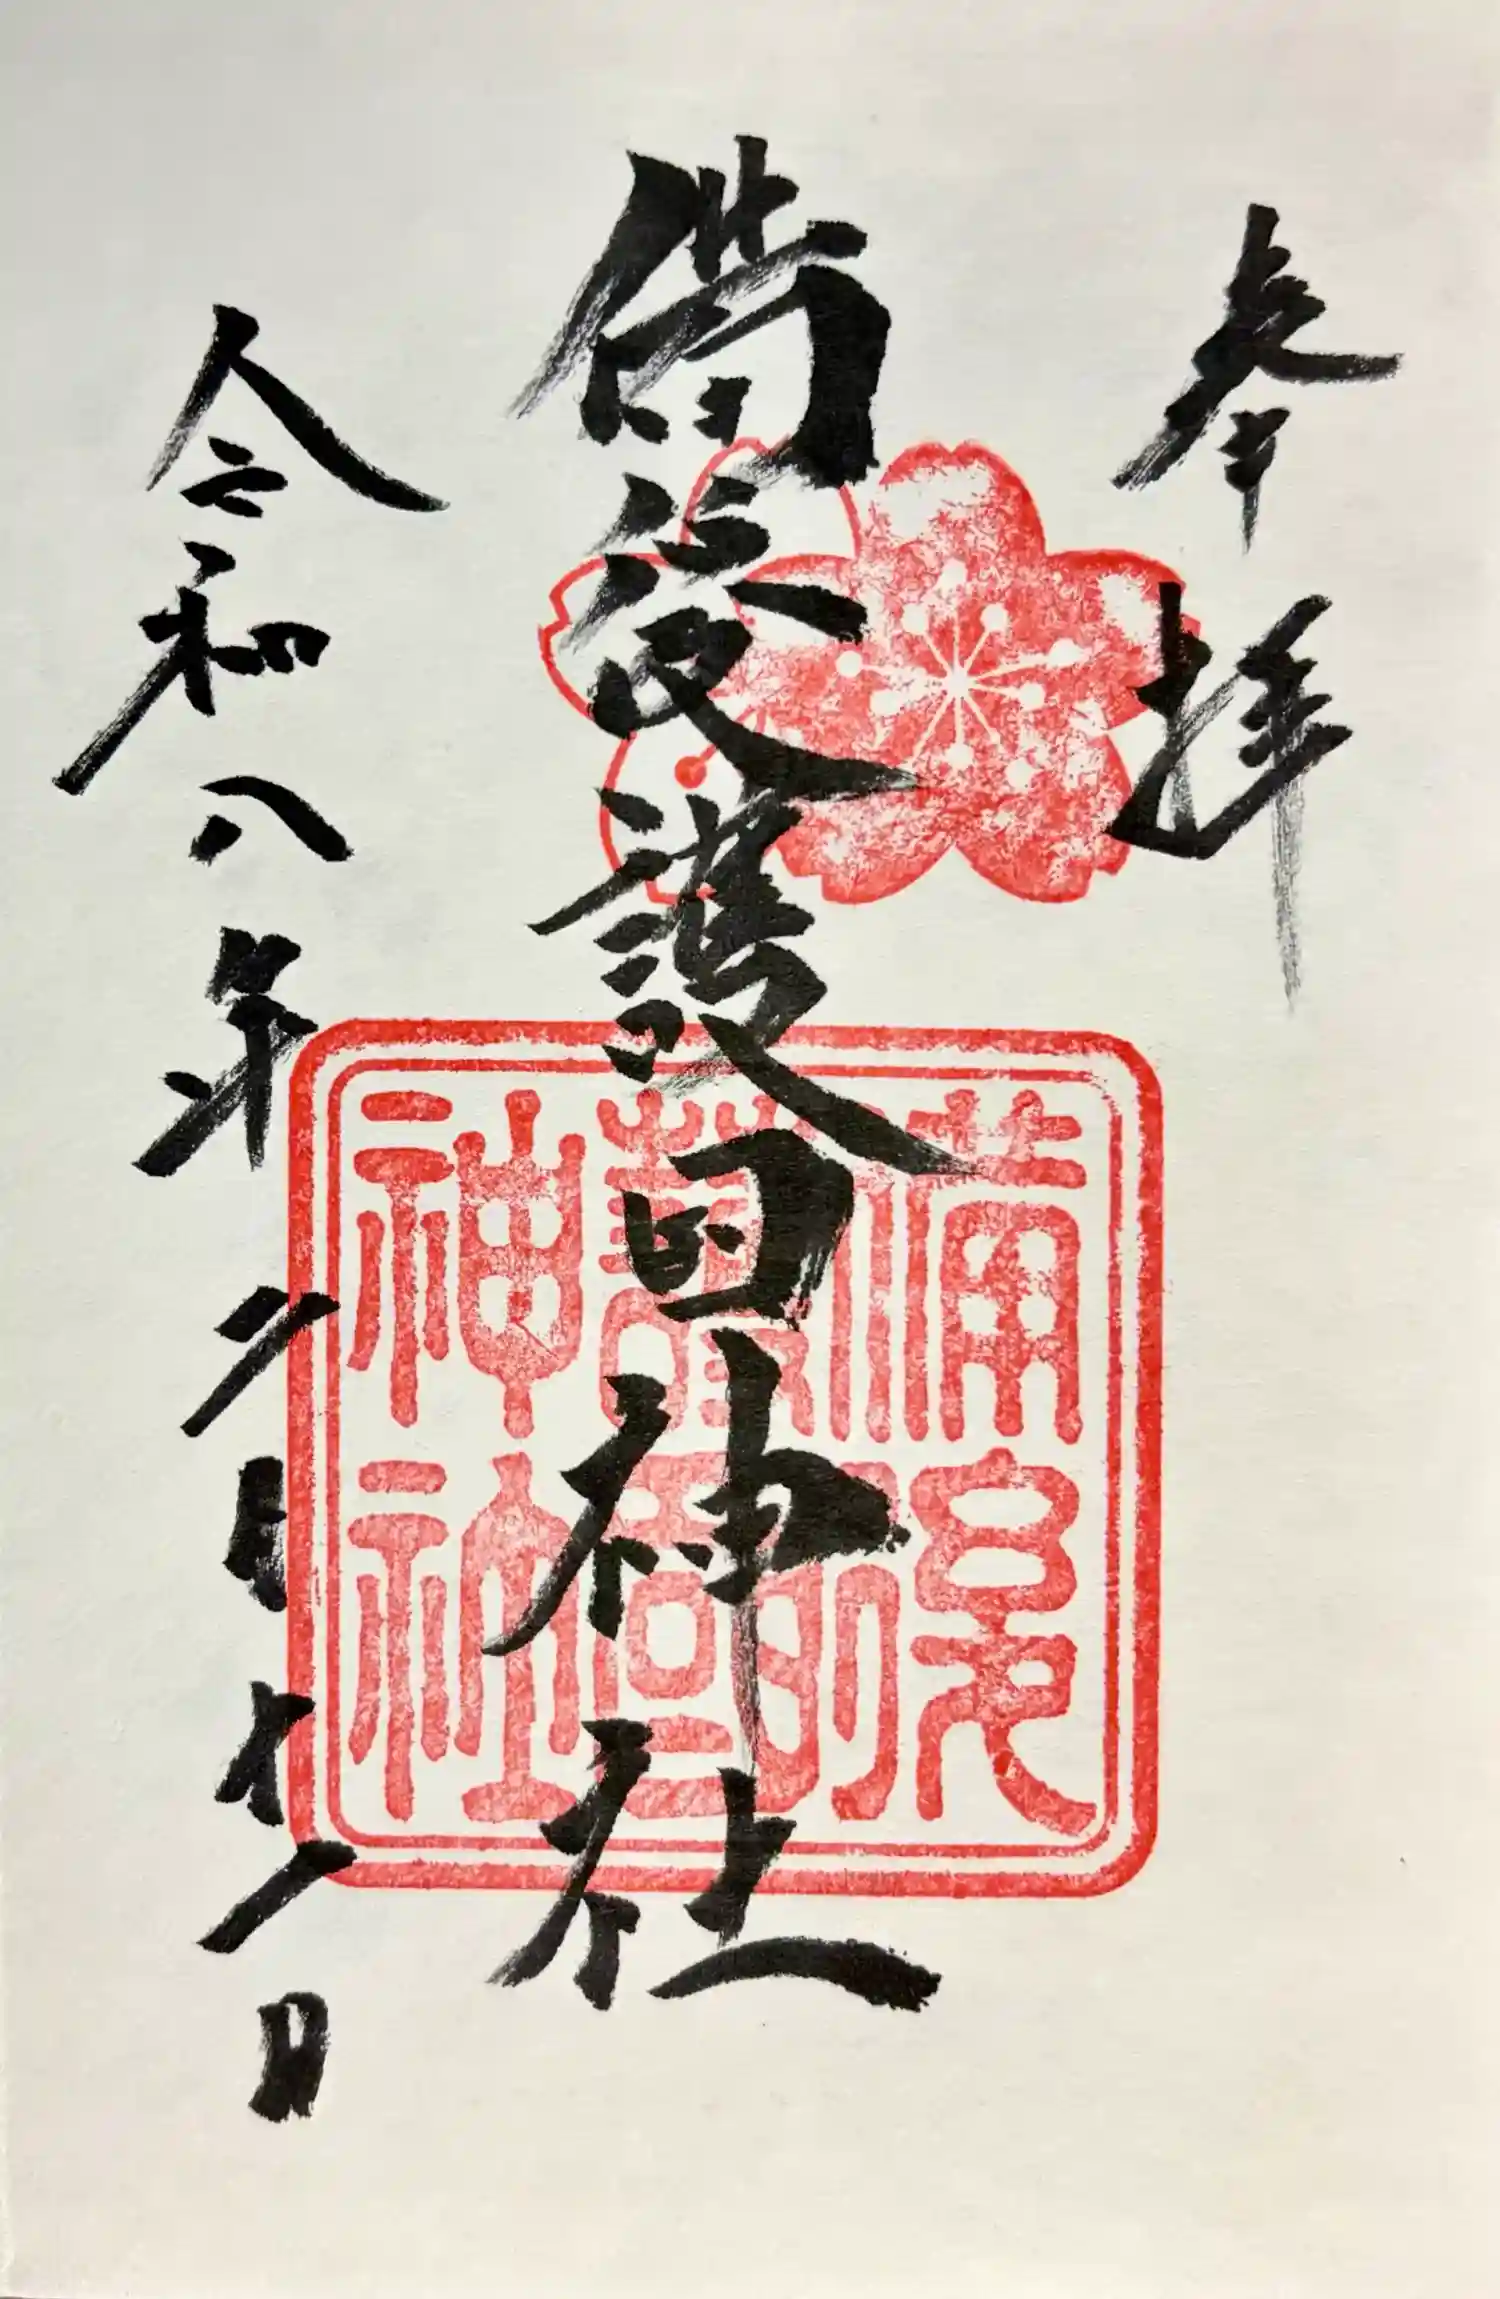 参拝
備後護国神社
備後
護國
神社
令和八年二月十一日